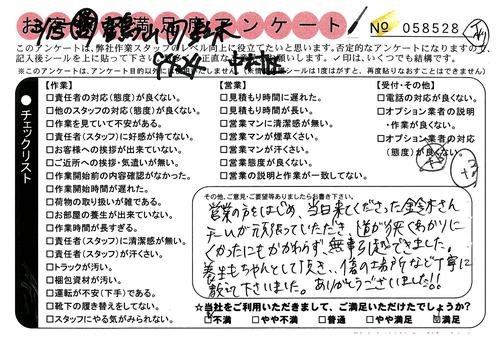 お客様満足度アンケート
№ 058528
このアンケートは、弊社作業スタッフのレベル向上に役立てたいと思います。否定的なアンケートになりますの
記入後シールを上に貼って下さい。
✓印は、いくつでも結構です。
チェックリスト
【作業】
□責任者の対応(態度)が良くない。
□他のスタッフの対応(態度)が良くない。
□作業を見ていて不安がある。
□責任者(スタッフ)に好感が持てない。
□お客様への挨拶が出来ていない。
□ご近所への挨拶・気遣いが無い。
□作業開始前の内容確認がなかった。
□作業開始時間が遅れた。
□荷物の取り扱いが雑である。
□お部屋の養生が出来ていない。
□作業時間が長すぎる。
□責任者(スタッフ)に清潔感が無い。
□責任者(スタッフ)が汗くさい。
□トラックが汚い。
□梱包資材が汚い。
□運転が不安(下手)である。
□靴下の履き替えをしてない。
□スタッフにやる気がみられない。
【営業】
□見積もり時間に遅れた。
□見積もり時間が長い。
□営業マンに清潔感が無い。
□営業マンが煙草くさい。
□営業マンが汗くさい。
□営業態度が良くない。
□営業の説明と作業が一致してない。
【受付・その他】
□電話の対応が良くない。
□オプション業者の説明
・作業が良くない。
□オプション業者の対応
(態度)が良くない。
その他、ご意見・ご要望等ありましたらお書き下さい。
営業の方をはじめ、当日来てくださった鈴木さん
チームが頑張っていただき、道が狭くわかりに
くかったにもかかわらず、無事引越できました。
養生もちゃんとして頂き、、個の場所など丁寧に
教えて下さいました。ありがとうございました!!
☆当社をご利用いただきまして、ご満足いただけたでしょうか?
□不満 □やや不満 □普通 □やや満足 ☑満足